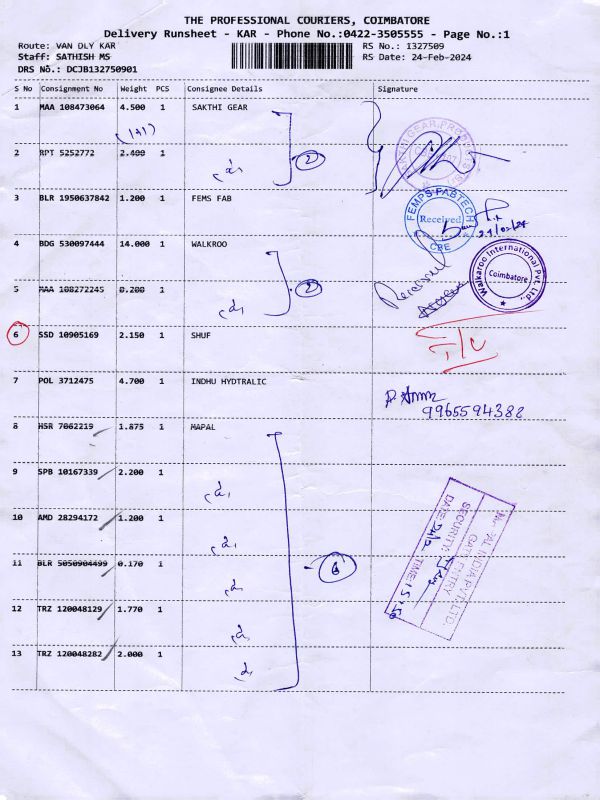 THE PROFESSIONAL COURIERS, COIMBATORE
Delivery Runsheet - KAR - Phone No.:0422-3505555 - Page No.:1
Route: VAN DLY KAR
RS No.: 1327509
Staff: SATHISH MS
RS Date: 24-Feb-2024
DRS No.: DCJB132750901
S No Consignment No Weight PCS Consignee Details Signature
1 MAA 108473064 4.500 1 SAKTHI GEAR
(1+1)
2 RPT 5252772 2.400 1
2
3 BLR 1950637842 1.200 1 FEMS FAB
FEMPS FABTECH
Received
CBE
4 BDG 530097444 14.000 1 WALKROO
Walkaroo International Pvt. Ltd.,
Coimbatore
5 MAA 108272245 0.200 1
2
Received
6 SSD 10905169 2.150 1 SHUF
7 POL 3712475 4.700 1 INDHU HYDTRALIC
9965594388
8 HSR 7062219 1.875 1 MAPAL
9 SPB 10167339 2.200 1
10 AMD 28294172 1.200 1
11 BLR 5050904499 0.170 1
6
12 TRZ 120048129 1.770 1
13 TRZ 120048282 2.000 1
INDIA PVT. LTD.
GATE ENTRY
SECURITY
DATE: TIME: